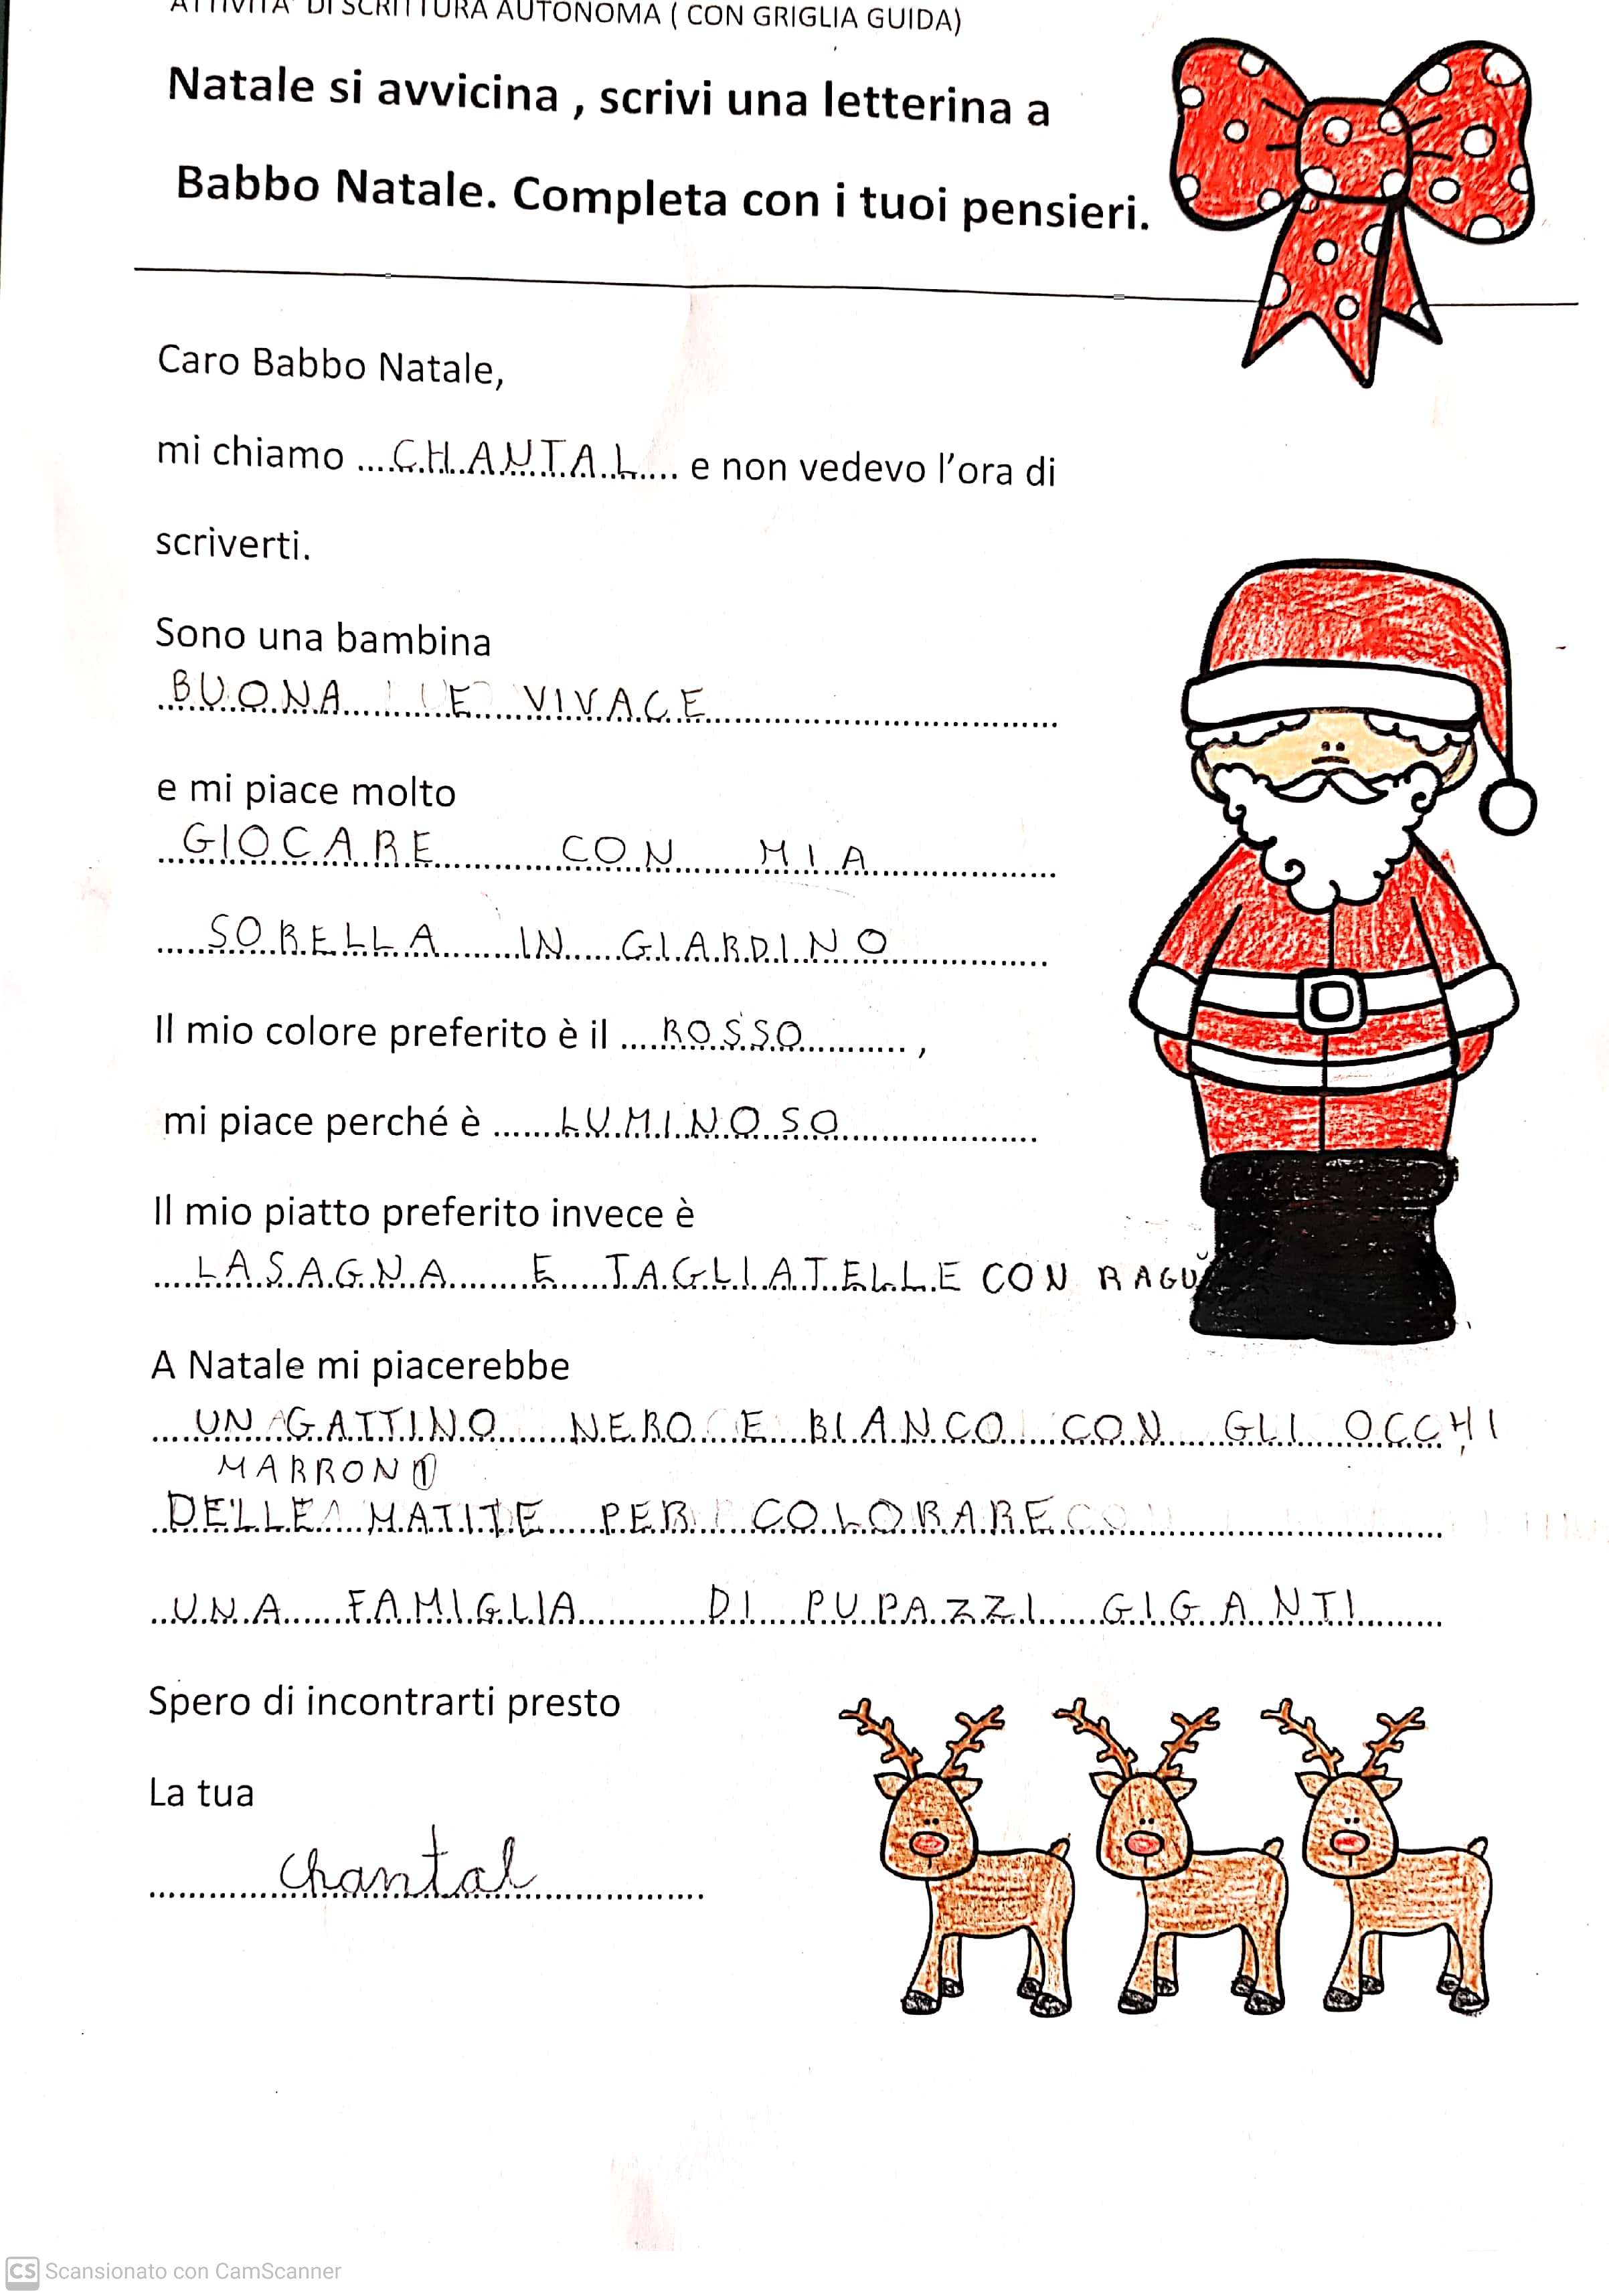 ATTIVITA' DI SCRITTURA AUTONOMA ( CON GRIGLIA GUIDA)
Natale si avvicina , scrivi una letterina a
Babbo Natale. Completa con i tuoi pensieri.
Caro Babbo Natale,
mi chiamo ....CHANTAL.... e non vedevo l'ora di
scriverti.
Sono una bambina
BUONA E VIVACE
e mi piace molto
GIOCARE CON MIA
SORELLA IN GIARDINO
Il mio colore preferito è il ....ROSSO.......... ,
mi piace perché è ......LUMINOSO..................
Il mio piatto preferito invece è
LASAGNA E TAGLIATELLE CON RAGÙ
A Natale mi piacerebbe
UN GATTINO NERO E BIANCO CON GLI OCCHI
MARRONI
DELLE MATITE PER COLORARE
UNA FAMIGLIA DI PUPAZZI GIGANTI
Spero di incontrarti presto
La tua
Chantal
CS Scansionato con CamScanner